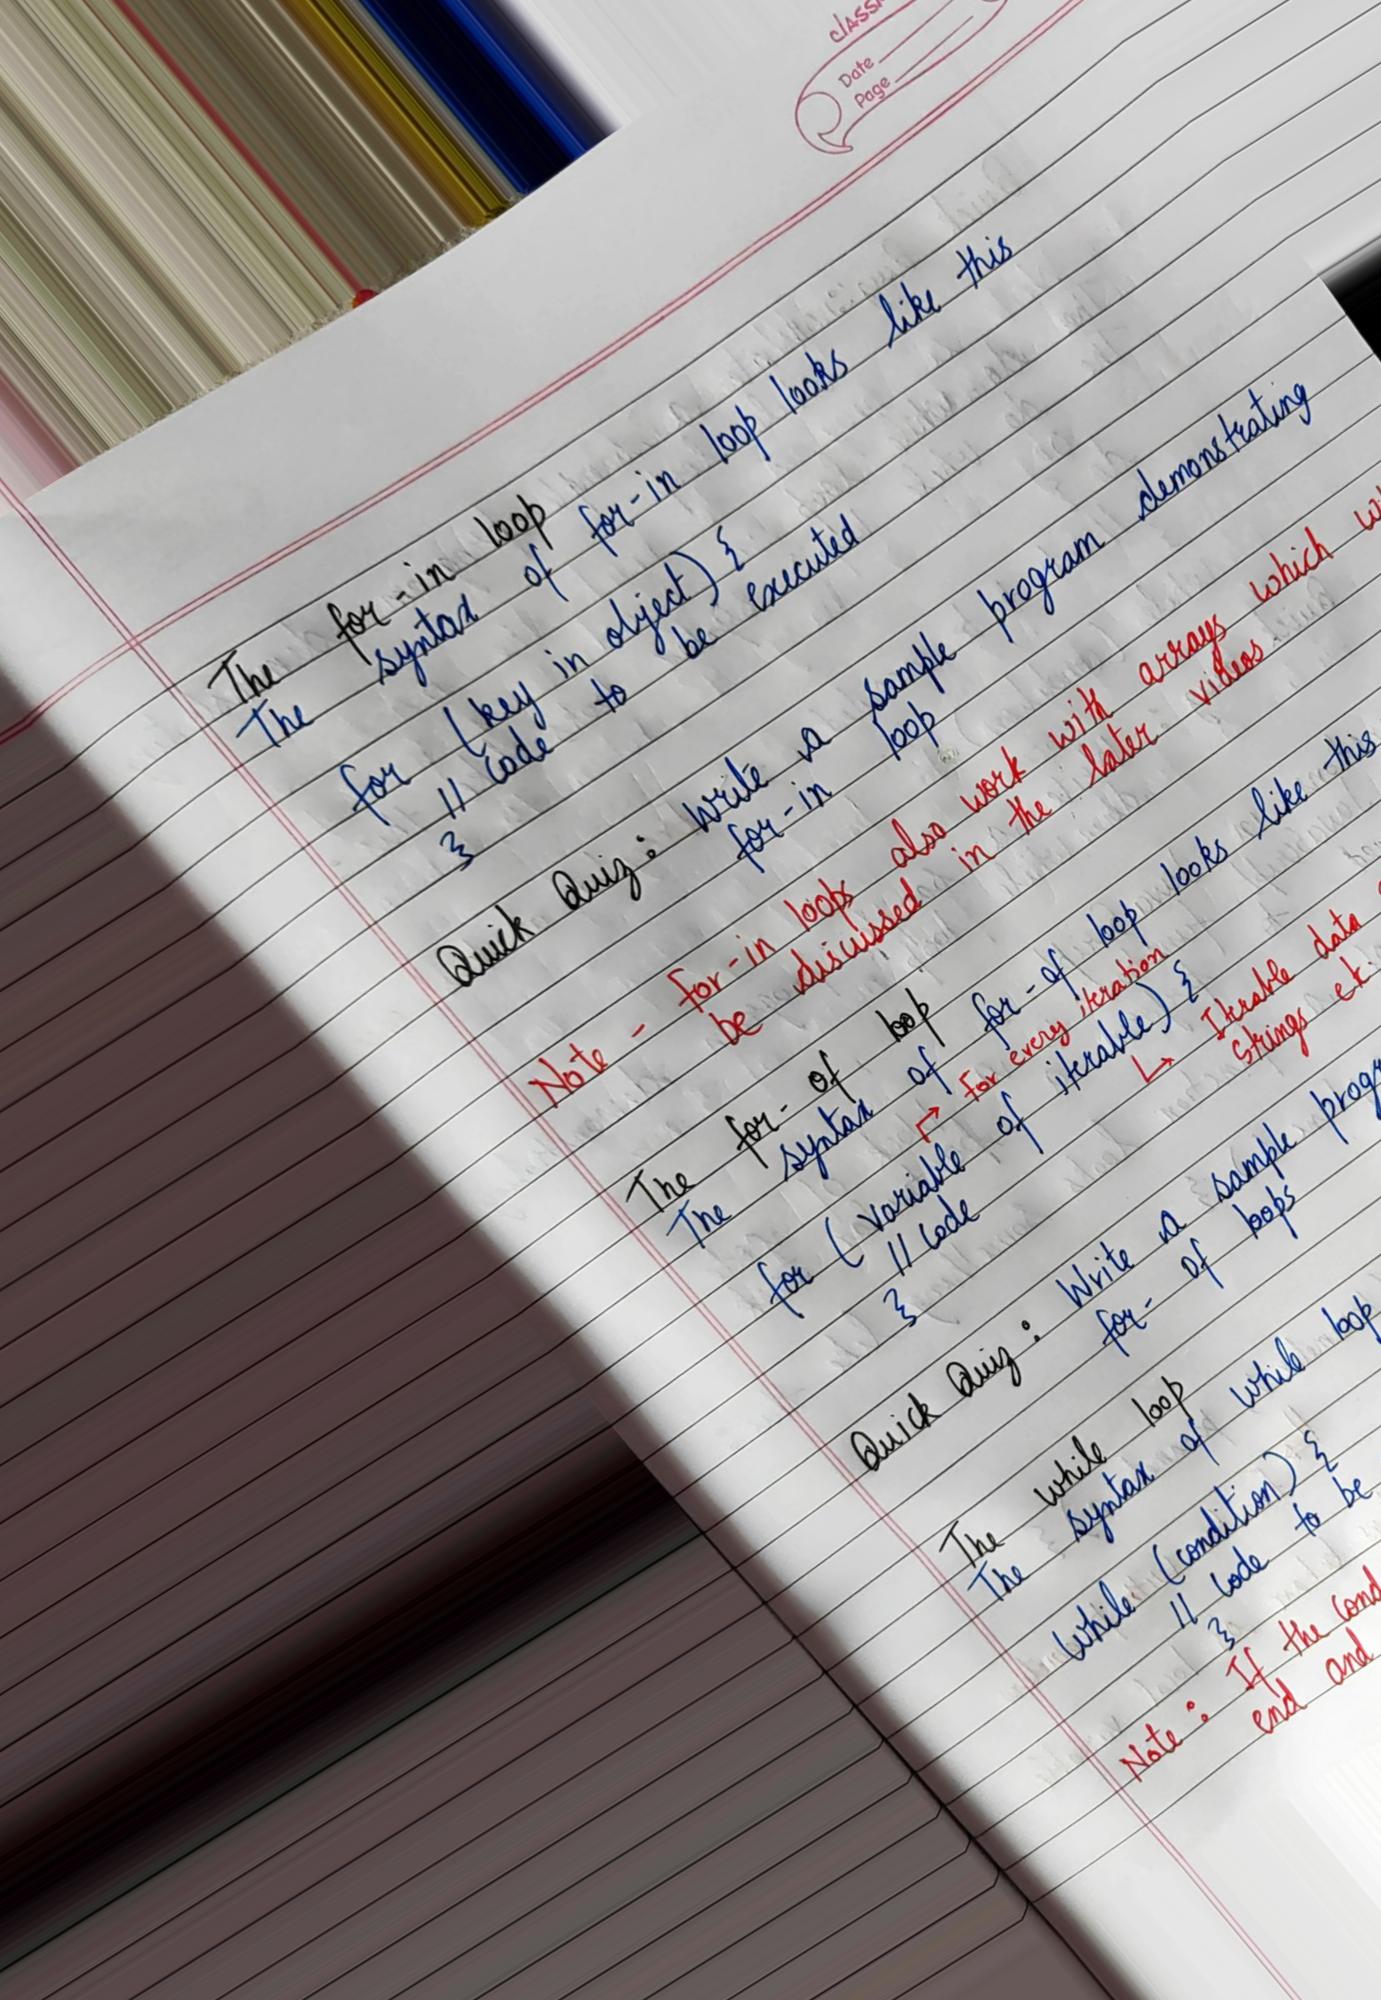 class
Date
Page
The for-in loop
The syntax of for-in loop looks like this
for (key in object) {
// code to be executed
}
Quick Quiz: Write a sample program demonstrating
for-in loop
Note - for-in loops also work with arrays which
be discussed in the later videos
The for-of loop
The syntax of for-of loop looks like this
For every iteration
for (variable of iterable) {
↳ Iterable data
// code
strings
}
Quick Quiz: Write a sample
for-of loops
The while loop
The syntax of while loop
while (condition) {
// code to be
}
Note: If the
end and